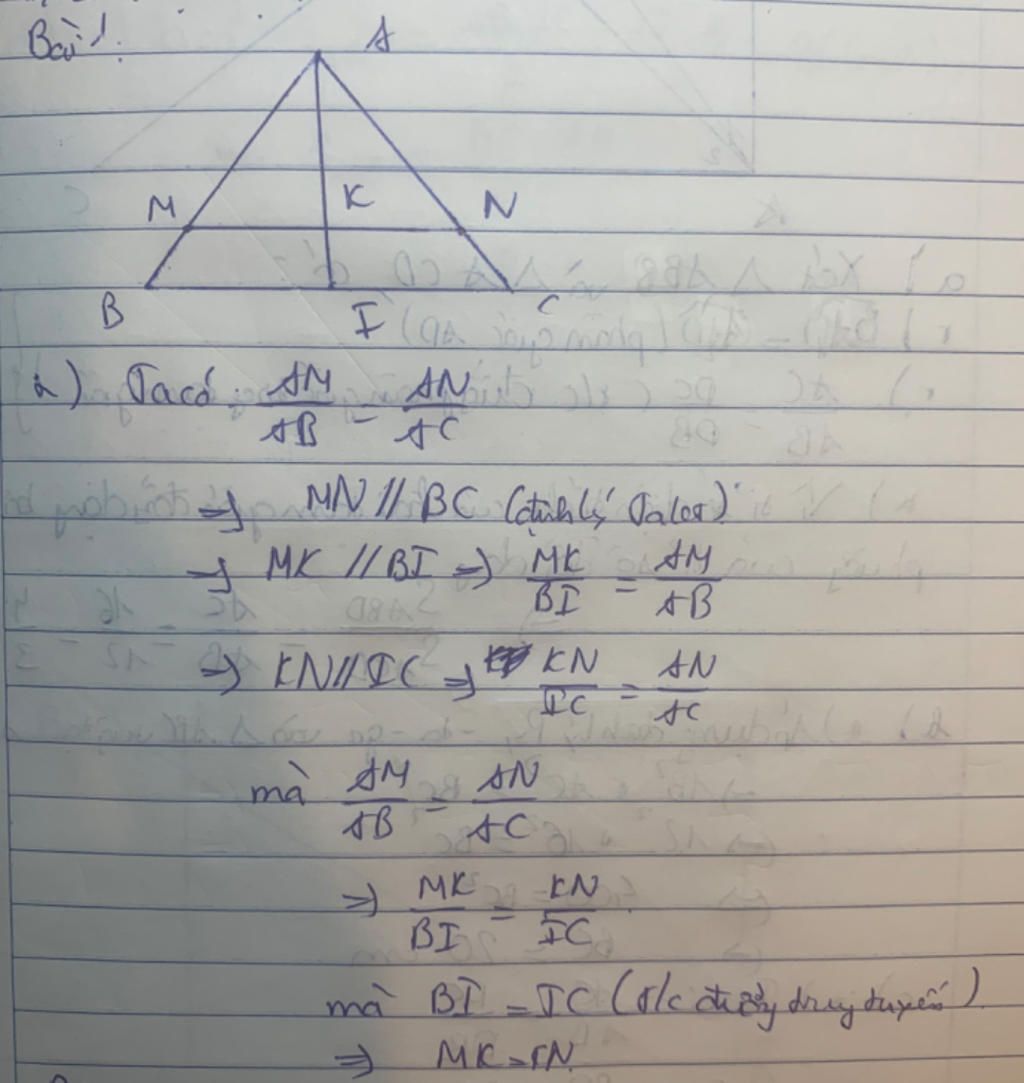 Bài 1:
A
M K N
B I C
a) Ta có: AM/AB = AN/AC
=> MN // BC (định lý Talet)
=> MK // BI => MK/BI = AM/AB
=> KN // IC => KN/IC = AN/AC
mà AM/AB = AN/AC
=> MK/BI = KN/IC
mà BI = IC (t/c đường trung tuyến)
=> MK = KN